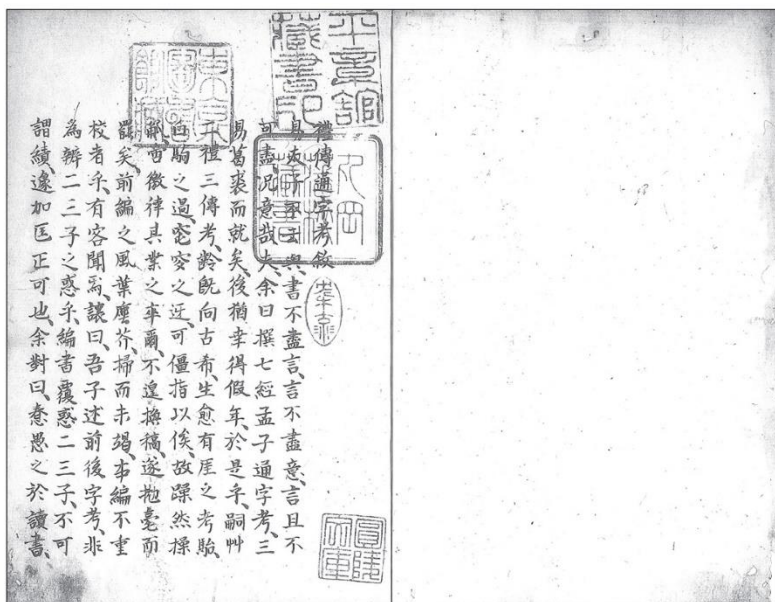 平章館藏書印
東京圖書館藏
禮傳通字考敘
與書不盡言、言不盡意、言且不
可盡況意哉夫余曰撰七經孟子通字考、三
易葛裘而就矣、後猶幸得假年、於是乎、嗣艸
禮三傳考、齡旣向古希、生愈有厓之考駘、
駒之過、窀穸之近、可僂指以俟、故躁然操
啻徵律具業之率爾、不遑換稿、遂抛毫而
罷矣、前編之風葉塵芥、掃而未竭、本編不重
校者乎、有客聞焉、諉曰、吾子述前後字考、非
為辨二三子之惑乎、編書覆惑二三子、不可
謂績、遽加匡正可也、余對曰、意愚之於讀書、